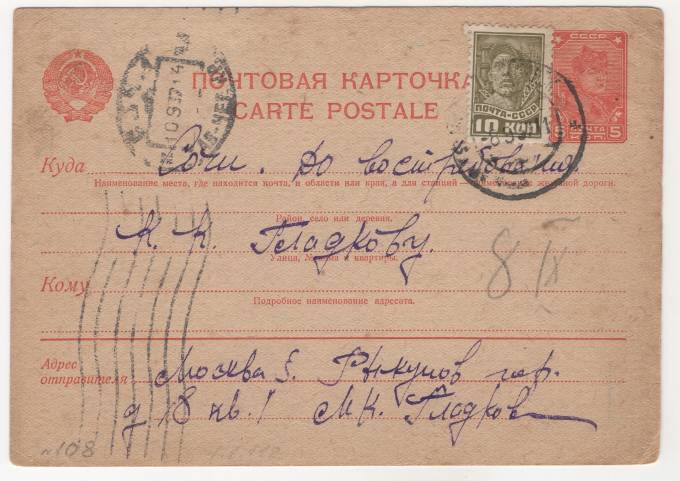 ПОЧТОВАЯ КАРТОЧКА
CARTE POSTALE
СССР
ПОЧТА-СССР
10 КОП
5 ПОЧТА 5
КОП
Куда Сочи. До востребования
Наименование места, где находится почта, и области или края, а для станций — наименование железной дороги.
Район, село или деревня.
К. К. Гладкову.
Улица, № дома и квартиры.
8 IX
Кому
Подробное наименование адресата.
Адрес
отправителя
Москва 5. Рыкунов пер.
д 18 кв. 1 М.К. Гладков
№108